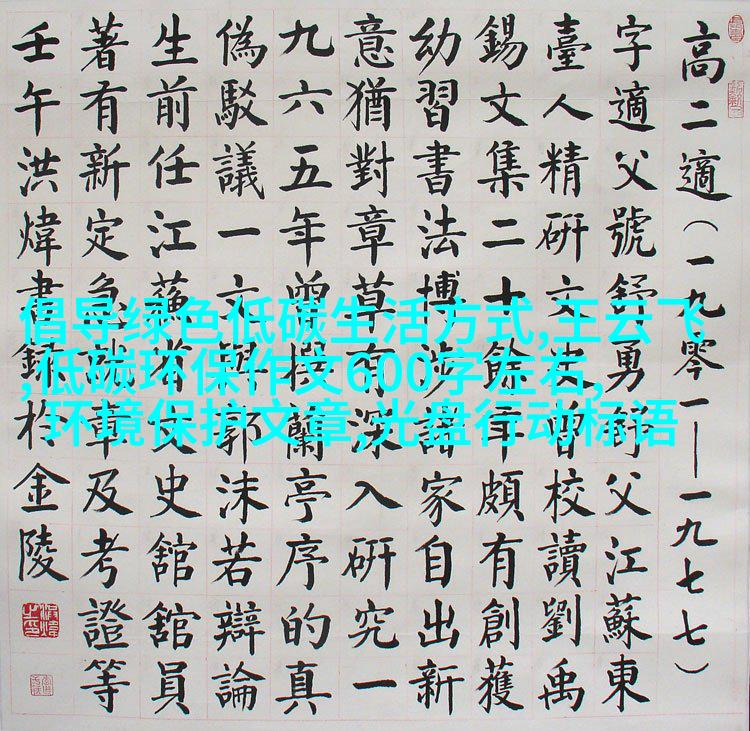 高二適（一九零一—一九七七）
字適父號舒勇舒父江蘇東
臺人精研文史曾校讀劉禹
錫文集二十餘年頗有創獲
幼習書法博涉諸家自出新
意猶對章草有深入研究一
九六五年曾撰蘭亭序的真
偽駁議一文與郭沫若辯論
生前任江蘇省文史館館員
著有新定急就章及考證等
壬午洪煒書錄於金陵
倡导绿色低碳生活方式,王云飞
,低碳环保作文600字左右,
环境保护文章,光盘行动标语